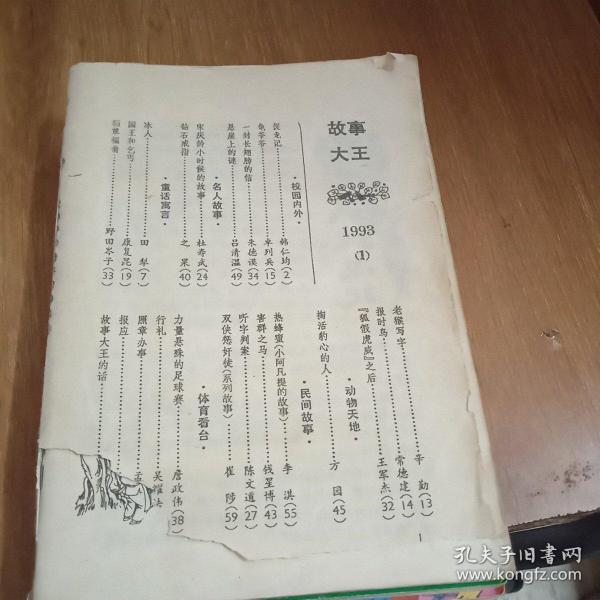 故事
大王
1993
(1)
·校园内外·
捉龙记 韩仁均(2)
龟爷爷 卓列兵(15)
一封长翅膀的信 朱德谟(34)
悬崖上的谜 吕清温(49)
·名人故事·
宋庆龄小时候的故事 杜寿武(24)
钻石戒指 之果(40)
·童话寓言·
冰人 田犁(7)
国王和乞丐 康复昆(19)
野田岑子(33)
老猴写字 辛勤(13)
报时鸟 常德建(14)
『狐假虎威』之后 王军杰(32)
·动物天地·
掏活豹心的人 方园(45)
·民间故事·
热蜂蜜(小阿凡提的故事) 李淇(55)
害群之马 钱星博(43)
听字判案 陈文道(27)
双侠惩奸徒(系列故事) 崔陟(59)
·体育看台·
力量悬殊的足球赛 詹政伟(38)
行礼 吴耀
照章办事 孟
报应
故事大王的话
1
孔夫子旧书网
www.kongfz.com